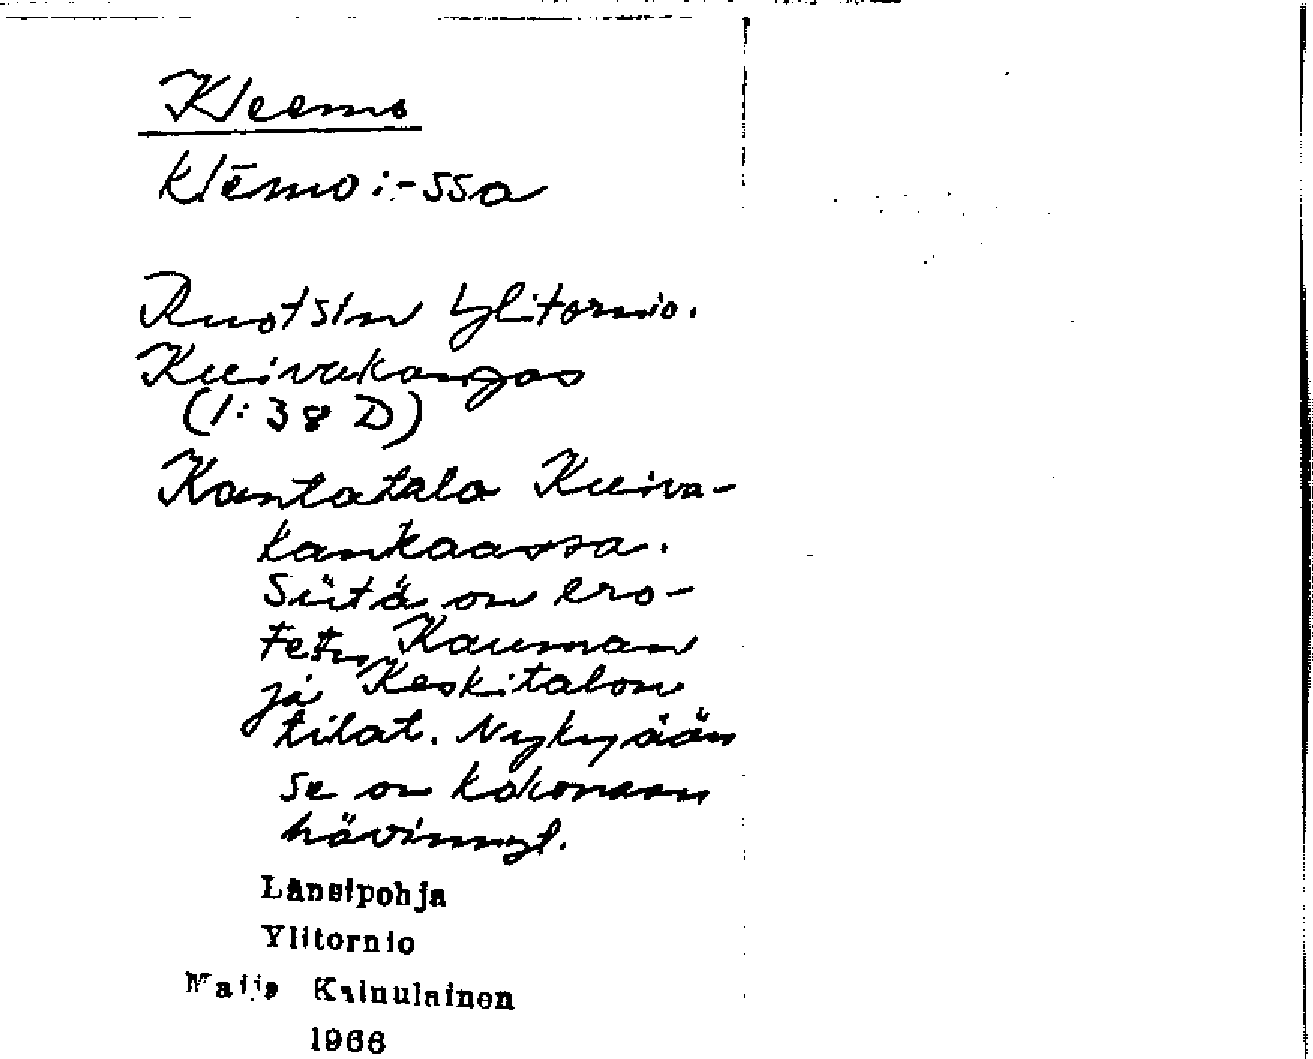 Kleemo
klēmo:-ssa
Ruotsin Ylitornio.
Kuivakangas
(1:38 D)
Kantatalo Kuiva-
kankaassa.
Siitä on ero-
tettu Kauman
ja Keskitalon
tilat. Nykyään
se on kokonaan
hävinnyt.
Länsipohja
Ylitornio
Maija Kainulainen
1966